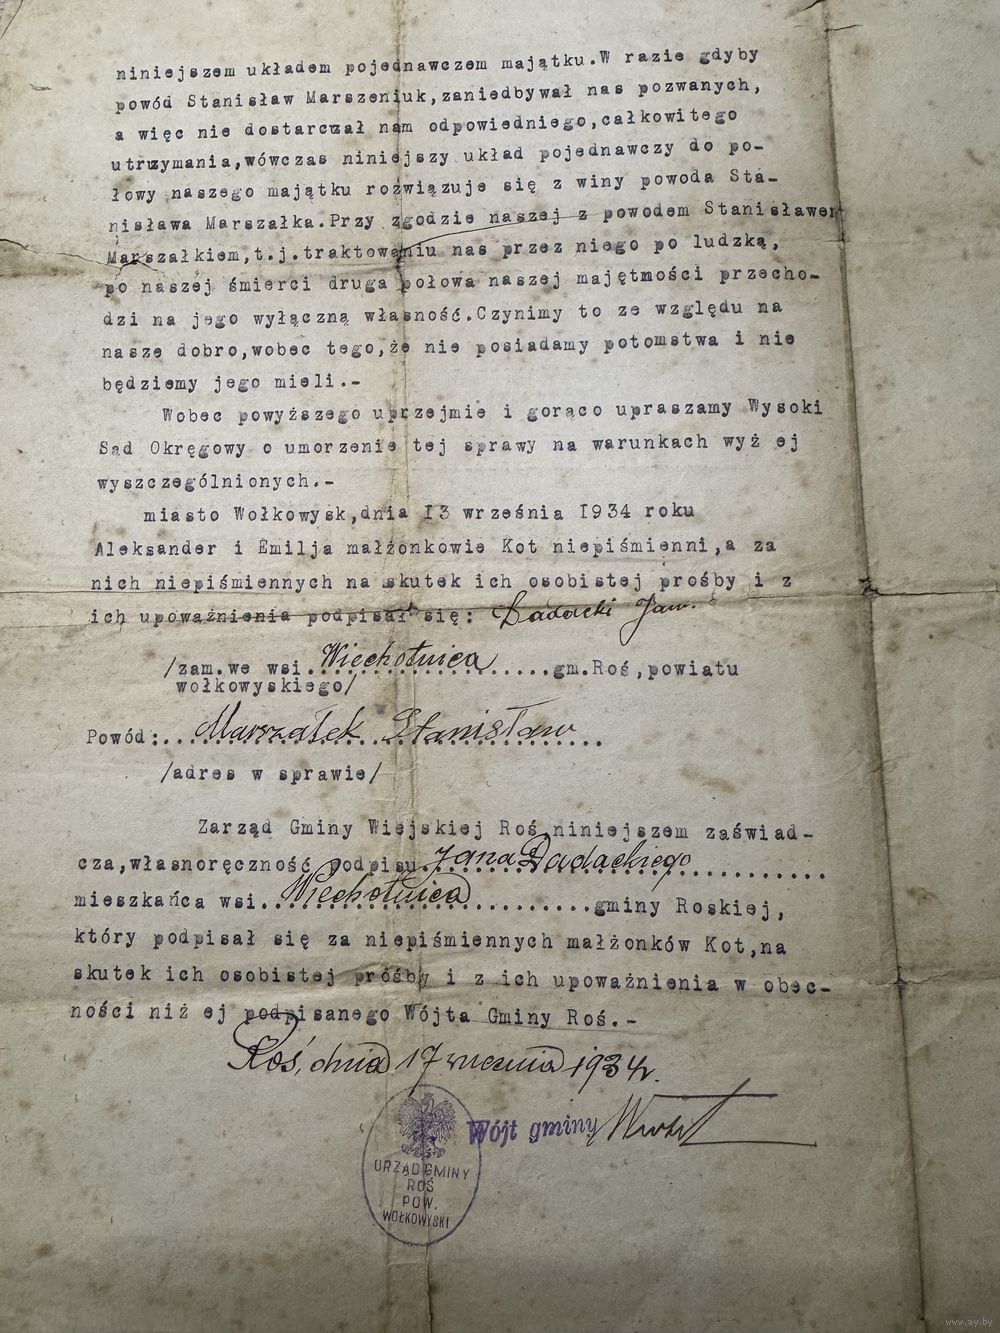 niniejszem układem pojednawczem majątku.W razie gdyby
powód Stanisław Marszeniuk,zaniedbywał nas pozwanych,
a więc nie dostarczał nam odpowiedniego,całkowitego
utrzymania,wówczas niniejszy układ pojednawczy do po-
łowy naszego majątku rozwiązuje się z winy powoda Sta-
nisława Marszałka.Przy zgodzie naszej z powodem Stanisławem
Marszałkiem,t.j.traktowaniu nas przez niego po ludzką,
po naszej śmierci druga połowa naszej majętności przecho-
dzi na jego wyłączną własność.Czynimy to ze względu na
nasze dobro,wobec tego,że nie posiadamy potomstwa i nie
będziemy jego mieli.-
Wobec powyższego uprzejmie i gorąco upraszamy Wysoki
Sąd Okręgowy o umorzenie tej sprawy na warunkach wyż ej
wyszczególnionych.-
miasto Wołkowysk,dnia I3 września I934 roku
Aleksander i Emilja małżonkowie Kot niepiśmienni,a za
nich niepiśmiennych na skutek ich osobistej prośby i z
ich upoważnienia podpisał się: Dadacki Jan.
/zam.we wsi.Wiechotnica.....gm.Roś,powiatu
wołkowyskiego/
Powód:..Marszałek Stanisław..
/adres w sprawie/
Zarząd Gminy Wiejskiej Roś,niniejszem zaświad-
cza,własnoręczność podpisu.Jana Dadackiego..........
mieszkańca wsi..Wiechotnica.........gminy Roskiej,
który podpisał się za niepiśmiennych małżonków Kot,na
skutek ich osobistej próśby i z ich upoważnienia w obec-
ności niż ej podpisanego Wójta Gminy Roś.-
Roś, dnia 17 września 1934 r.
Wójt gminy
URZĄD GMINY
ROŚ
POW.
WOŁKOWYSKI
www.ay.by